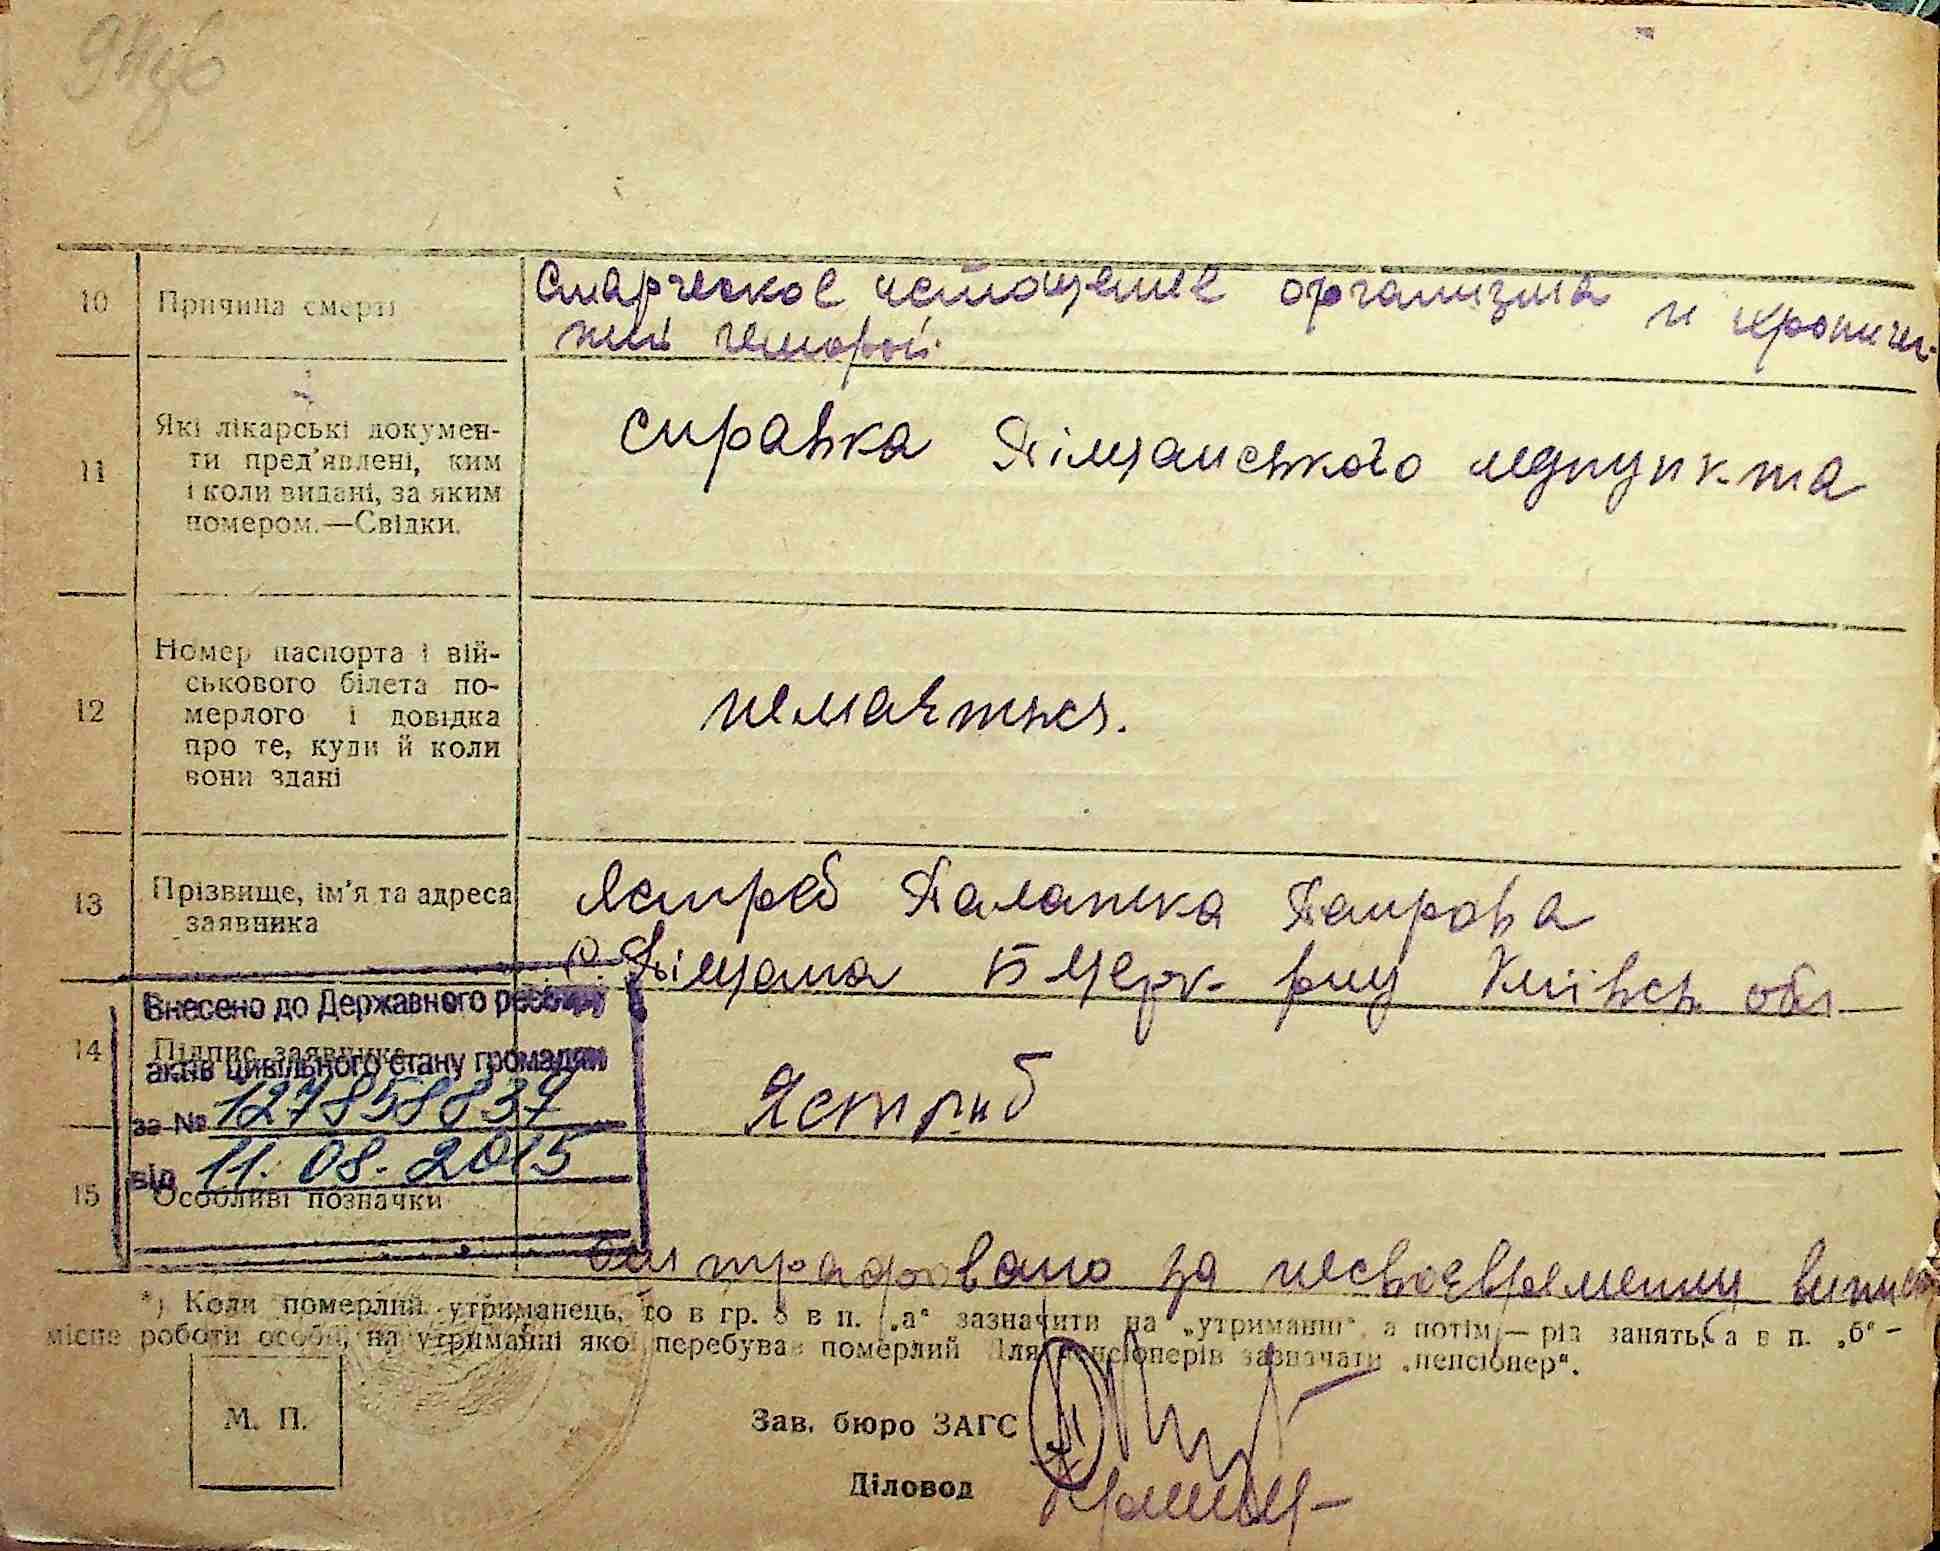 10 Причина смерти
Старческое истощение организма и хроничес-
кий геморой.
11 Які лікарські докумен-
ти пред'явлені, ким
і коли видані, за яким
номером.—Свідки.
справка Піщанського медпункта
12 Номер паспорта і вій-
ськового білета по-
мерлого і довідка
про те, куди й коли
вони здані
немається.
13 Прізвище, ім'я та адреса
заявника
Ястреб Палажка Паирова
с. Піщана Б Церк. р-ну Київськ обл
Внесено до Державного реєстру
14 Підпис заявника
актів цивільного стану громадян
Ястриб
за № 127858837
від 11.08.2015
15 Особливі позначки
за несвоєвременну
*) Коли померлий утриманець, то в гр. 8 в п. „а" зазначити на „утриманні", а потім — рід занять, а в п. „б" —
місце роботи особи, на утриманні якої перебував померлий Для пенсіонерів зазначати „пенсіонер".
М. П.
Зав. бюро ЗАГС
Діловод